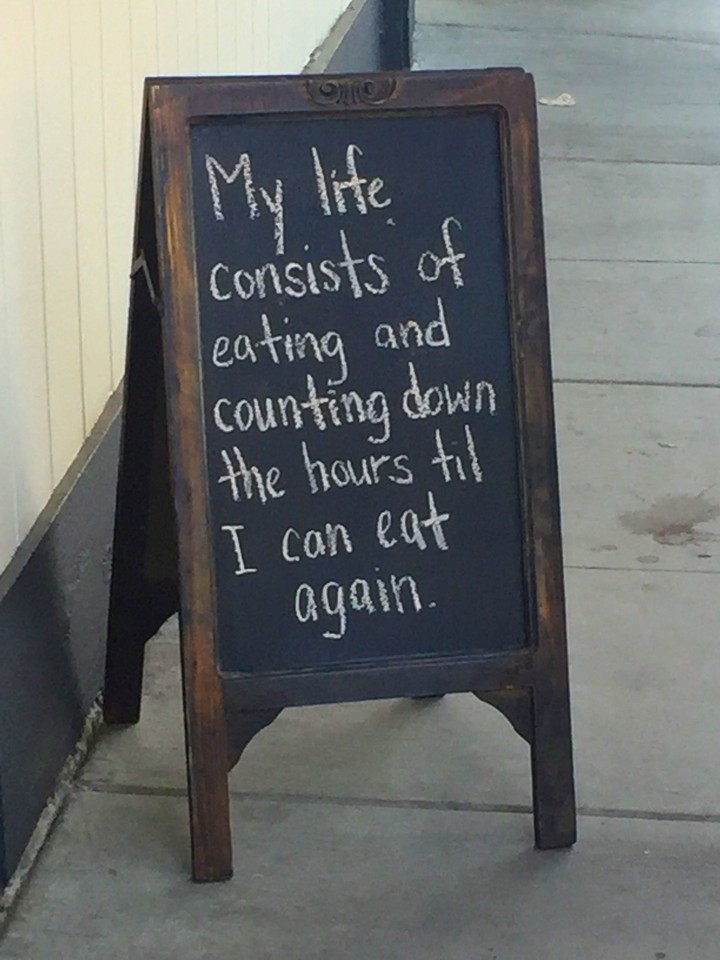 My life
consists of
eating and
counting down
the hours til
I can eat
again.